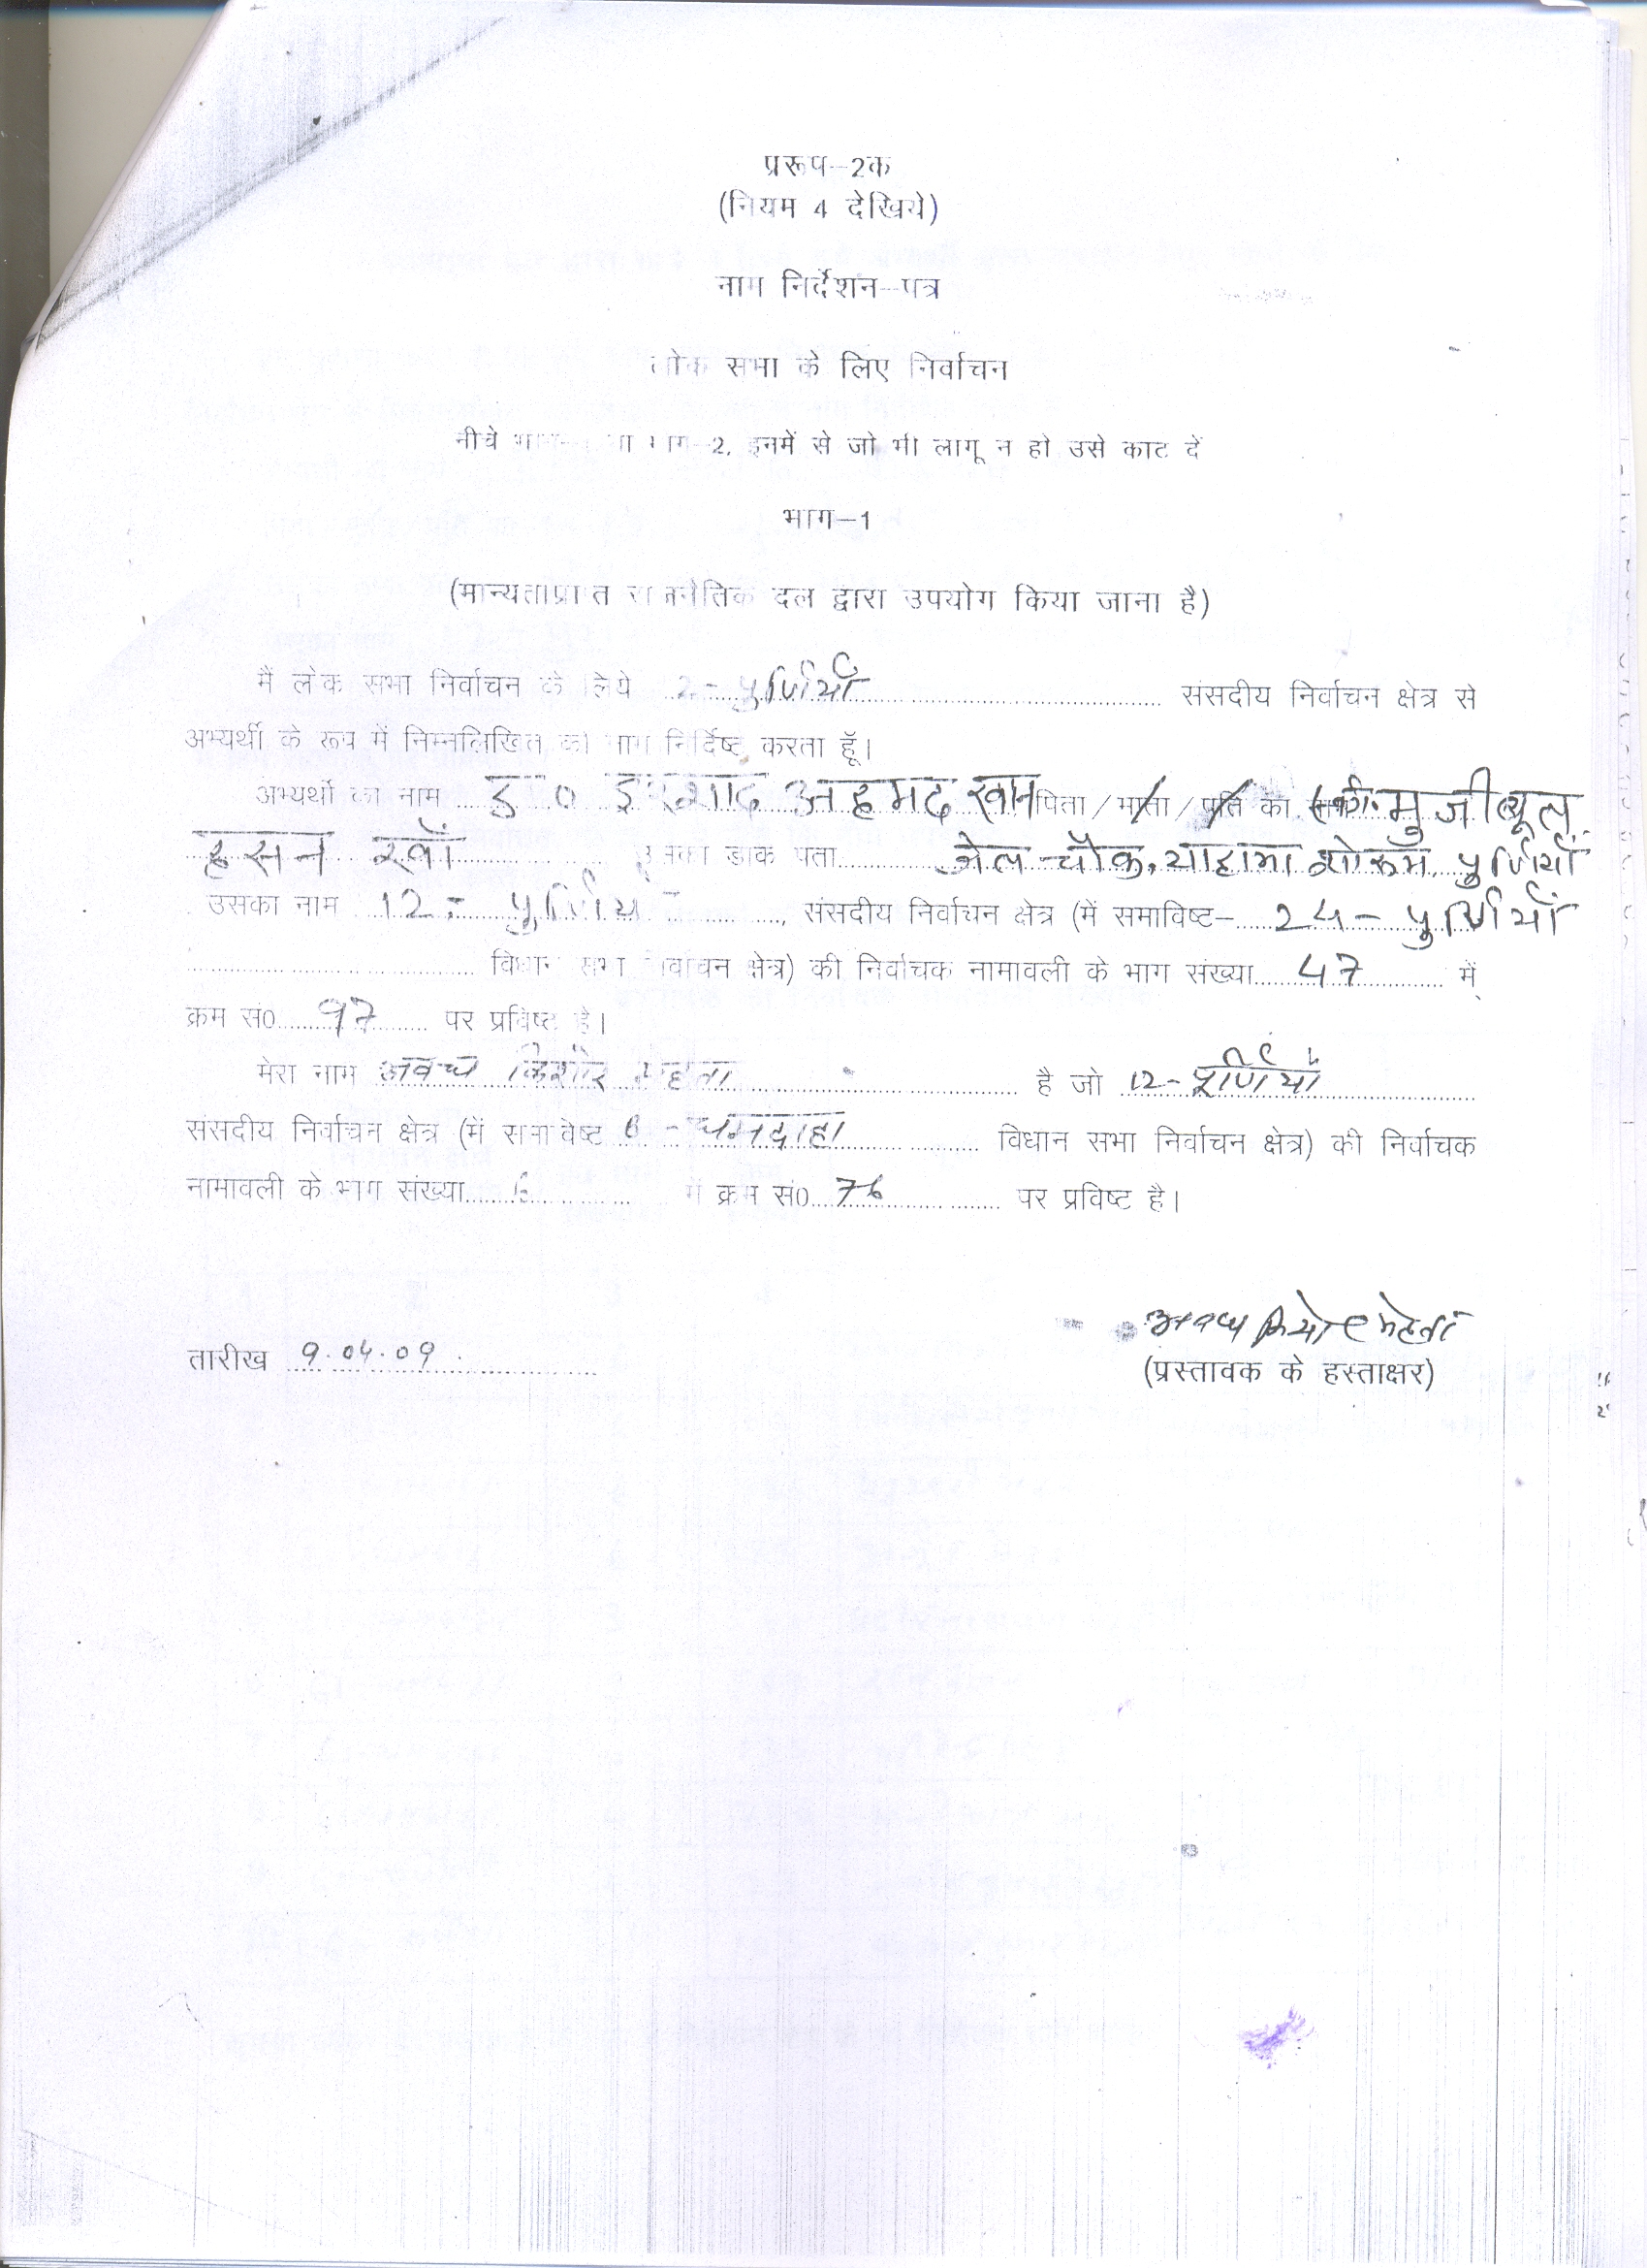 प्ररूप-2क
(नियम 4 देखिये)
नाम निर्देशन-पत्र
लोक सभा के लिए निर्वाचन
नीचे भाग-1 या भाग-2, इनमें से जो भी लागू न हो उसे काट दें
भाग-1
(मान्यताप्राप्त राजनैतिक दल द्वारा उपयोग किया जाना है)
मैं लोक सभा निर्वाचन के लिये 12- पूर्णियाँ संसदीय निर्वाचन क्षेत्र से
अभ्यर्थी के रूप में निम्नलिखित का नाम निर्दिष्ट करता हूँ।
अभ्यर्थी का नाम डा० इरशाद अहमद खान पिता/माता/पति का नाम स्व०. मुजीबूल
हसन खाँ उसका डाक पता जेल चौक, यामाहा शोरूम, पूर्णियाँ
उसका नाम 12- पूर्णियाँ, संसदीय निर्वाचन क्षेत्र (में समाविष्ट- 24- पूर्णियाँ
विधान सभा निर्वाचन क्षेत्र) की निर्वाचक नामावली के भाग संख्या 47 में
क्रम सं0 97 पर प्रविष्ट है।
मेरा नाम अवध किशोर महता है जो 12- पूर्णियाँ
संसदीय निर्वाचन क्षेत्र (में समाविष्ट धमदाहा विधान सभा निर्वाचन क्षेत्र) की निर्वाचक
नामावली के भाग संख्या 6 में क्रम सं0 76 पर प्रविष्ट है।
अवध किशोर मेहता
तारीख 9.04.09
(प्रस्तावक के हस्ताक्षर)